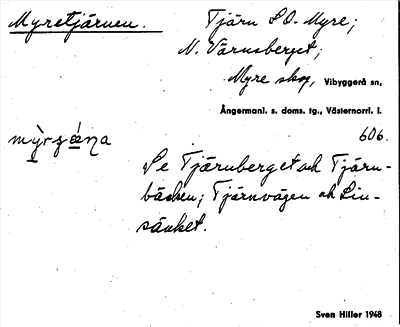 Myretjärnen. Tjärn S.O. Myre;
N. Värnsberget;
Myre skog, Vibyggerå sn,
Ångermanl. s. doms. tg., Västernorrl. l.
606.
Se Tjärnberget och Tjärn-
bäcken; Tjärnvägen och Lin-
sänket.
Sven Hiller 1948